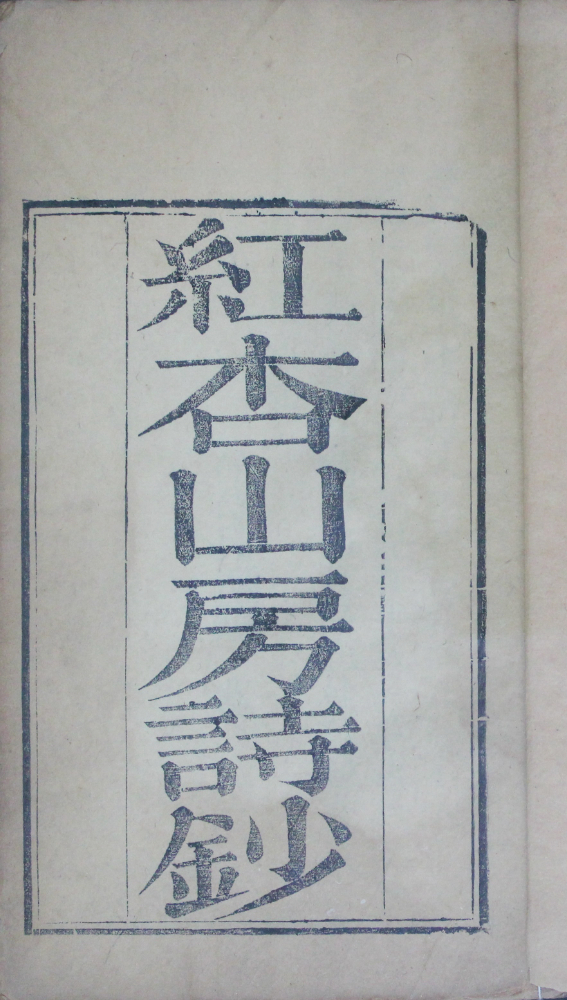 紅杏山房詩鈔